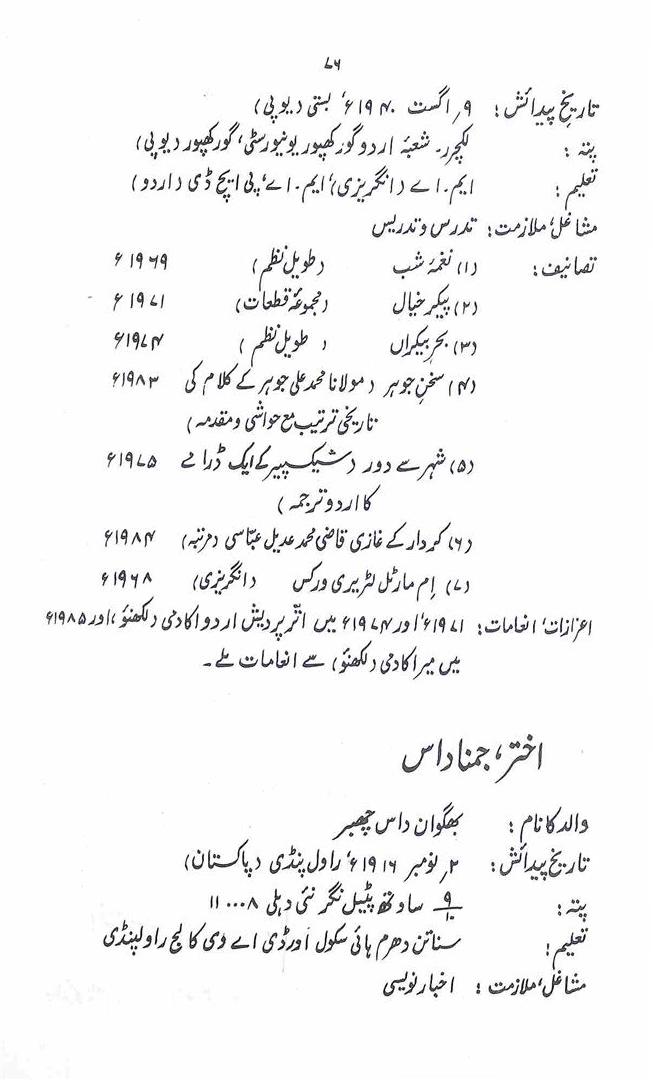 ۷۶
تاریخِ پیدائش: ۹؍ اگست ۱۹۴۰ء، بستی (یوپی)
پتہ: لکچرر۔ شعبۂ اردو گورکھپور یونیورسٹی، گورکھپور (یوپی)
تعلیم: ایم۔اے (انگریزی)، ایم۔اے، پی ایچ ڈی (اردو)
مشاغل، ملازمت: تدرس و تدریس
تصانیف: (۱) نغمۂ شب (طویل نظم) ۱۹۶۹ء
(۲) پیکرِ خیال (مجموعۂ قطعات) ۱۹۷۱ء
(۳) بحرِ بیکراں (طویل نظم) ۱۹۷۴ء
(۴) سخنِ جوہر (مولانا محمد علی جوہر کے کلام کی ۱۹۸۳ء
تاریخی ترتیب مع حواشی و مقدمہ)
(۵) شہر سے دور (شیکسپیر کے ایک ڈرامے ۱۹۷۵ء
کا اردو ترجمہ)
(۶) کردار کے غازی قاضی محمد عدیل عبّاسی (مرتبہ) ۱۹۸۴ء
(۷) اِم مارٹل لٹریری ورکس (انگریزی) ۱۹۶۸ء
اعزازات، انعامات: ۱۹۷۱ء، اور ۱۹۷۴ء میں اتّر پردیش اردو اکادمی (لکھنؤ)، اور ۱۹۸۵ء
میں میر اکادمی (لکھنؤ) سے انعامات ملے۔
اختر، جمنا داس
والد کا نام: بھگوان داس چھبر
تاریخِ پیدائش: ۲؍ نومبر ۱۹۱۶ء، راول پنڈی (پاکستان)
پتہ: ۹/۱۰ ساوتھ پٹیل نگر نئی دہلی ۱۱۰۰۰۸
تعلیم: سناتن دھرم ہائی سکول اور ڈی اے وی کالج راولپنڈی
مشاغل، ملازمت: اخبار نویسی